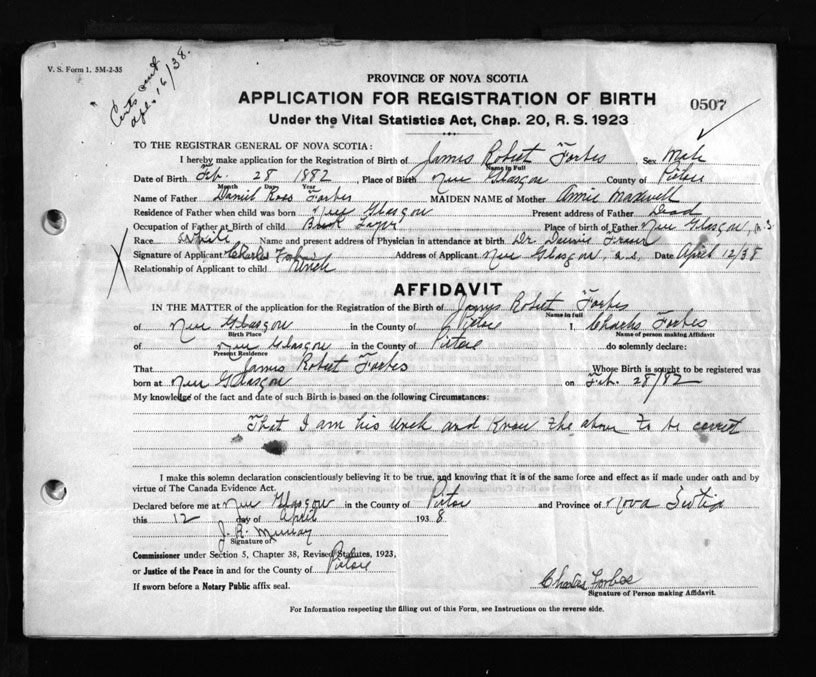 V. S. Form 1. 5M-2-35
Certs sent
Apl. 16/38.
PROVINCE OF NOVA SCOTIA
APPLICATION FOR REGISTRATION OF BIRTH
0507
Under the Vital Statistics Act, Chap. 20, R. S. 1923
TO THE REGISTRAR GENERAL OF NOVA SCOTIA:
I hereby make application for the Registration of Birth of James Robert Forbes Sex Male
Name in Full
Date of Birth Feb. 28 1882, Place of Birth New Glasgow County of Pictou
Month Day Year
Name of Father Daniel Ross Forbes MAIDEN NAME of Mother Annie Maxwell
Residence of Father when child was born New Glasgow Present address of Father Dead
Occupation of Father at Birth of child Place of birth of Father New Glasgow, N.S
Race White Name and present address of Physician in attendance at birth Dr. Fraser
Signature of Applicant Charles Forbes Address of Applicant New Glasgow, N.S. Date April 12/38
Relationship of Applicant to child Uncle
AFFIDAVIT
IN THE MATTER of the application for the Registration of the Birth of James Robert Forbes
Name in full
of New Glasgow in the County of Pictou I, Charles Forbes
Birth Place Name of person making Affidavit
of New Glasgow in the County of Pictou do solemnly declare:
Present Residence
That James Robert Forbes Whose Birth is sought to be registered was
born at New Glasgow on Feb. 28/82
My knowledge of the fact and date of such Birth is based on the following Circumstances:
That I am his Uncle and Know the above to be correct
I make this solemn declaration conscientiously believing it to be true, and knowing that it is of the same force and effect as if made under oath and by
virtue of The Canada Evidence Act.
Declared before me at New Glasgow in the County of Pictou and Province of Nova Scotia
this 12 day of April 1938.
J. R. Murray
Signature of
Commissioner under Section 5, Chapter 38, Revised Statutes, 1923,
or Justice of the Peace in and for the County of Pictou
Charles Forbes
If sworn before a Notary Public affix seal.
Signature of Person making Affidavit.
For Information respecting the filling out of this Form, see Instructions on the reverse side.